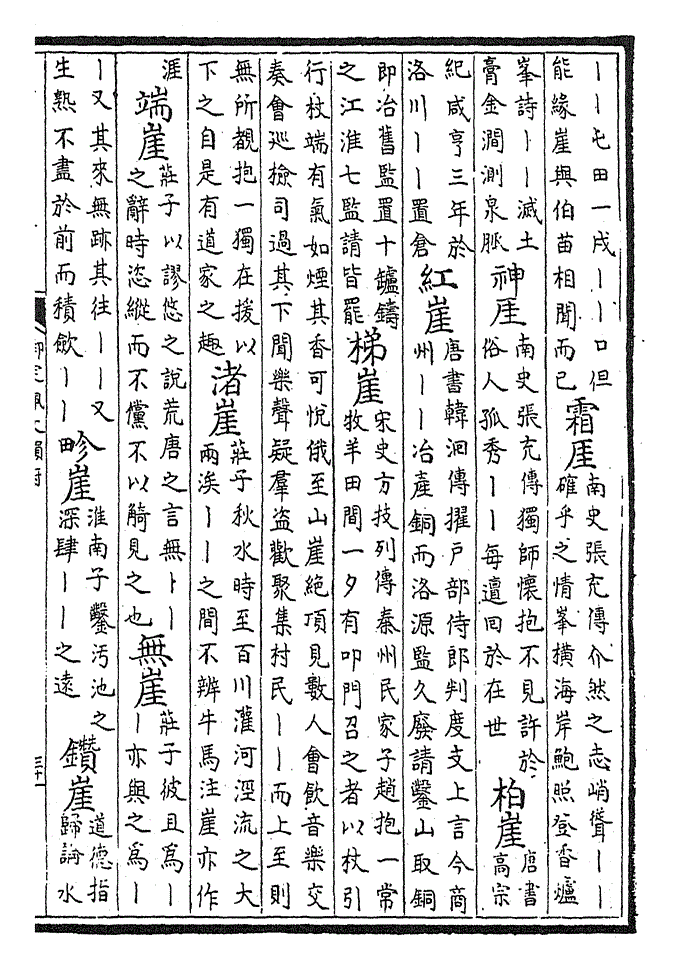 ｜｜屯田一戌｜｜口但
能緣崖與伯苗相聞而已
霜厓
南史張充傳介然之志峭聳｜｜
確乎之情峯橫海岸鮑照登香爐
峯詩｜｜滅土
膏金澗測泉脈
神厓
南史張充傳獨師懷抱不見許於
俗人孤秀｜｜每邅回於在世
柏崖
唐書
高宗
紀咸亨三年於
洛川｜｜置倉
紅崖
唐書韓洄傳擢戶部侍郎判度支上言今商
州｜｜冶產銅而洛源監久廢請鑿山取銅
即冶舊監置十鑪鑄
之江淮七監請皆罷
梯崖
宋史方技列傳秦州民家子趙抱一常
牧羊田間一夕有叩門召之者以杖引
行杖端有氣如煙其香可悅俄至山崖絕頂見數人會飲音樂交
奏會巡檢司過其下聞樂聲疑羣盜歡聚集村民｜｜而上至則
無所覩抱一獨在援以
下之自是有道家之趣
渚崖
莊子秋水時至百川灌河涇流之大
兩涘｜｜之間不辨牛馬注崖亦作
涯
端崖
莊子以謬悠之說荒唐之言無｜｜
之辭時恣縱而不儻不以觭見之也
無崖
莊子彼且爲｜
｜亦與之爲｜
｜又其來無跡其往｜｜又
生熟不盡於前而積斂｜｜
畛崖
淮南子鑿汚池之
深肆｜｜之遠
鑽崖
道德指
歸論水